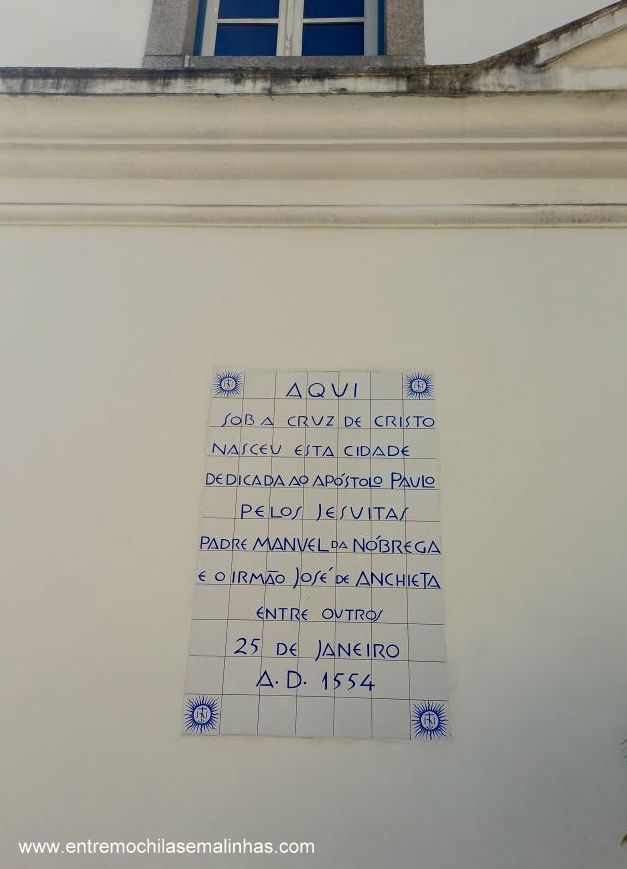 AQUI
SOB A CRUZ DE CRISTO
NASCEU ESTA CIDADE
DEDICADA AO APÓSTOLO PAULO
PELOS JESUITAS
PADRE MANUEL DA NÓBREGA
E O IRMÃO JOSÉ DE ANCHIETA
ENTRE OUTROS
25 DE JANEIRO
A. D. 1554
www.entremochilasemalinhas.com